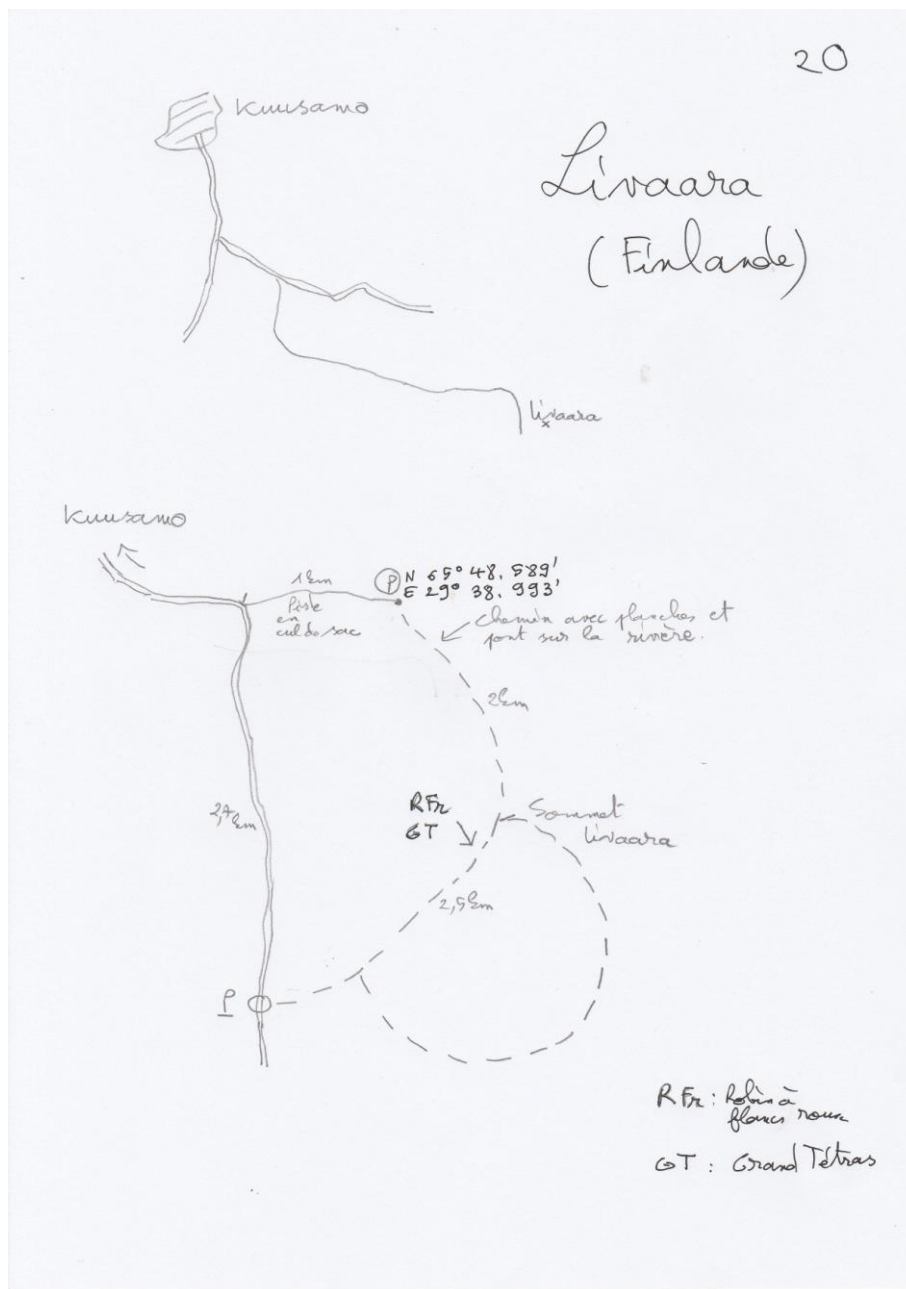 20
Kuusamo
Livaara
(Finlande)
livaara
Kuusamo
1km
Piste
en
cul de sac
P N 65° 48. 589'
E 29° 38. 993'
chemin avec planches et
pont sur la rivière.
2km
2,4km
RFr
GT
Sommet
livaara
2,5km
P
RFr : Robin à
flancs roux
GT : Grand Tétras